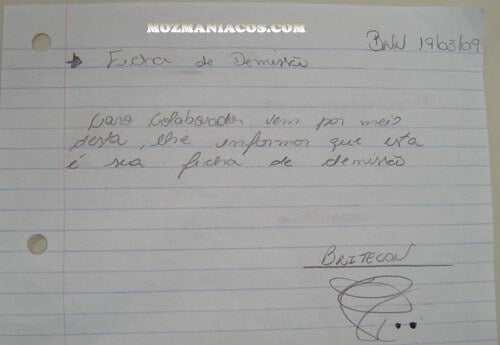 MOZMANIACOS.COM
19/03/09
→ Ficha de Demissão
Caro Colaborador vem por meio
desta, lhe informar que esta
é sua ficha de demissão
BRITECON